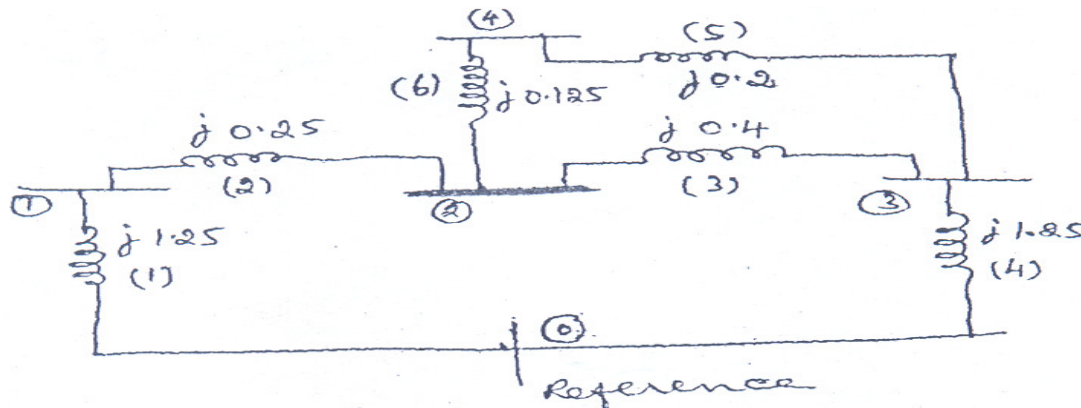 (4)
(5)
(6) j 0.125
j 0.2
j 0.25
j 0.4
(2)
(3)
1
2
3
j 1.25
(1)
j 1.25
(4)
0
Reference